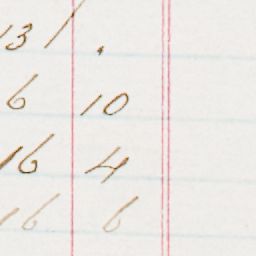 13 1 .
6 10
16 4
16 6